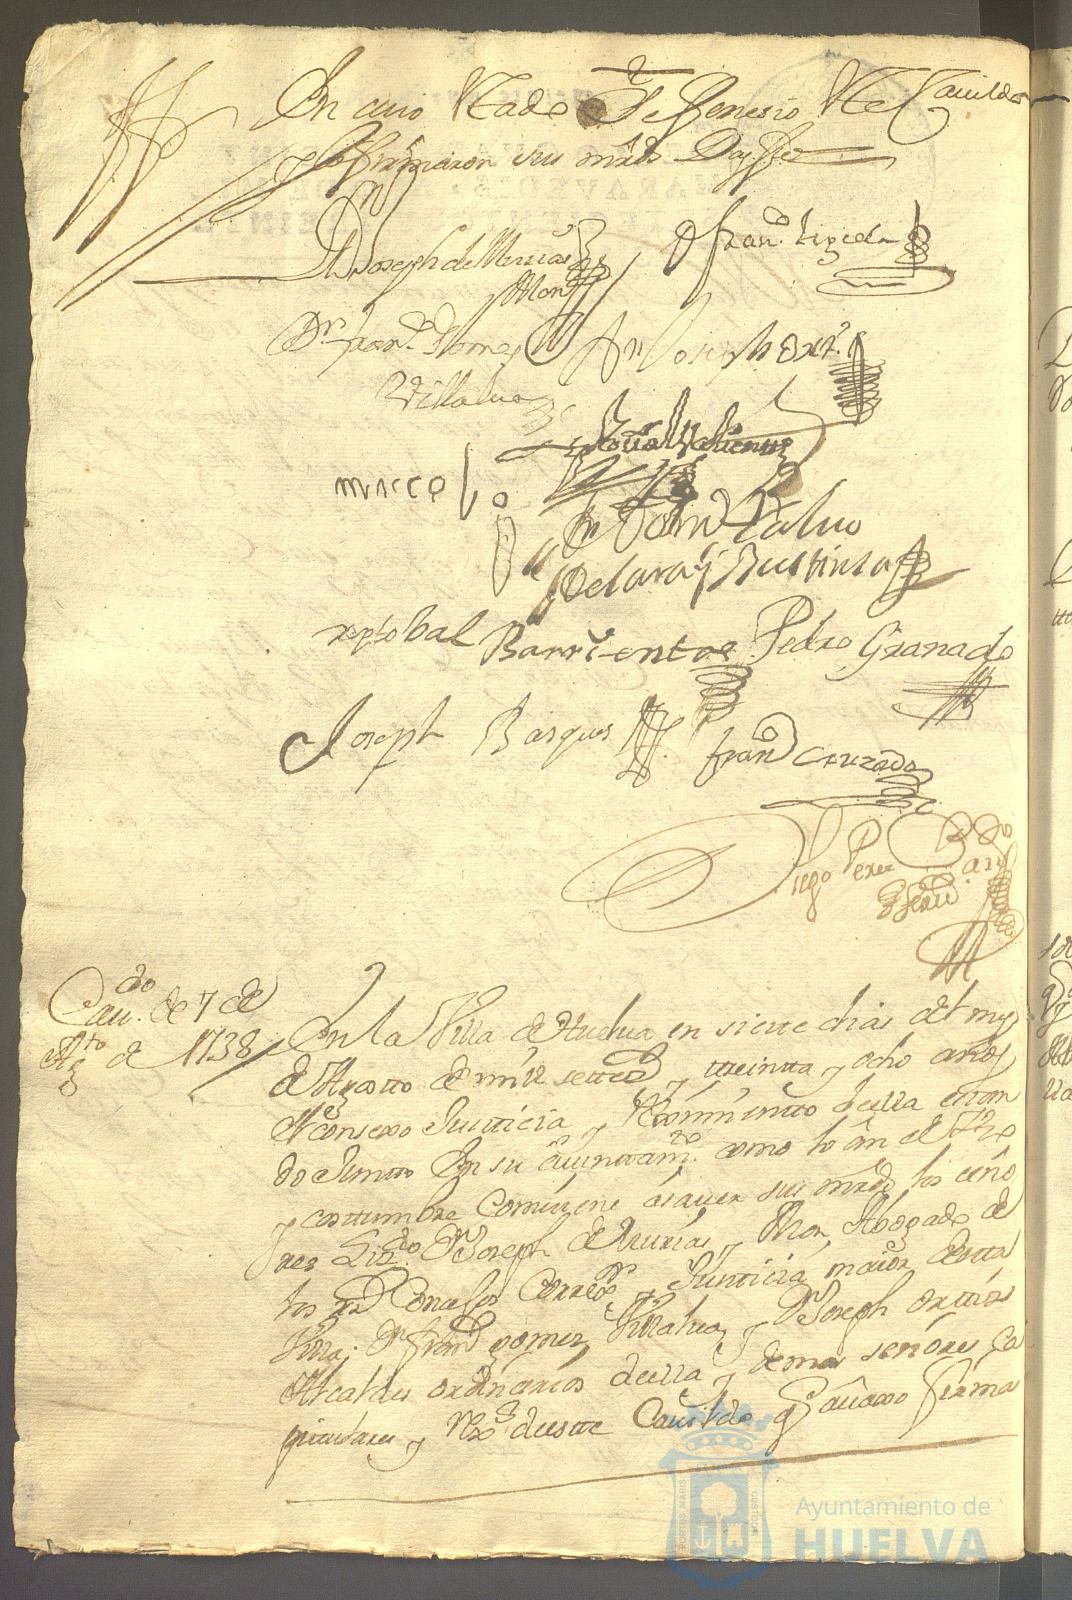 En cuio estado se fenesio este Cauildo
y lo firmaron sus mrds Doy fee
Dn Joseph de Murias
y Mon
Dn Fran.co Zepeda
Dn Fran.co Gomez
Villalua
Dn Joseph Ortz
Xptoual Valiente
marcos
Dn Juan Caluo
De lara y Bustinsa
xptobal Barrientos
Pedro Granado
Joseph Basques
Fran.co Cruzado
Diego Perez
Esscriu.
Cau.do de 7 de
Ag.to de 1738
En la Villa de Huelua en siette dias del mes
de Agosto de mill settez.s y treinta y ocho años
el Consexo Justicia y Reximiento de ella estan
do Junto En su aiuntam.to como lo an de Uso
y costumbre Combiene asauer sus mrds los seño
res Liz.do Dn Joseph de Murias y Mon Abogado de
los Rs Consejos Corre.or y Justicia maior de esta
Villa; Dn Fran.co gomez Villalua y Dn Joseph ortis
Alcaldes ordinarios de ella y demas señores Ca
pitulares y de este Cauildo q auaxo firma
Ayuntamiento de
HUELVA